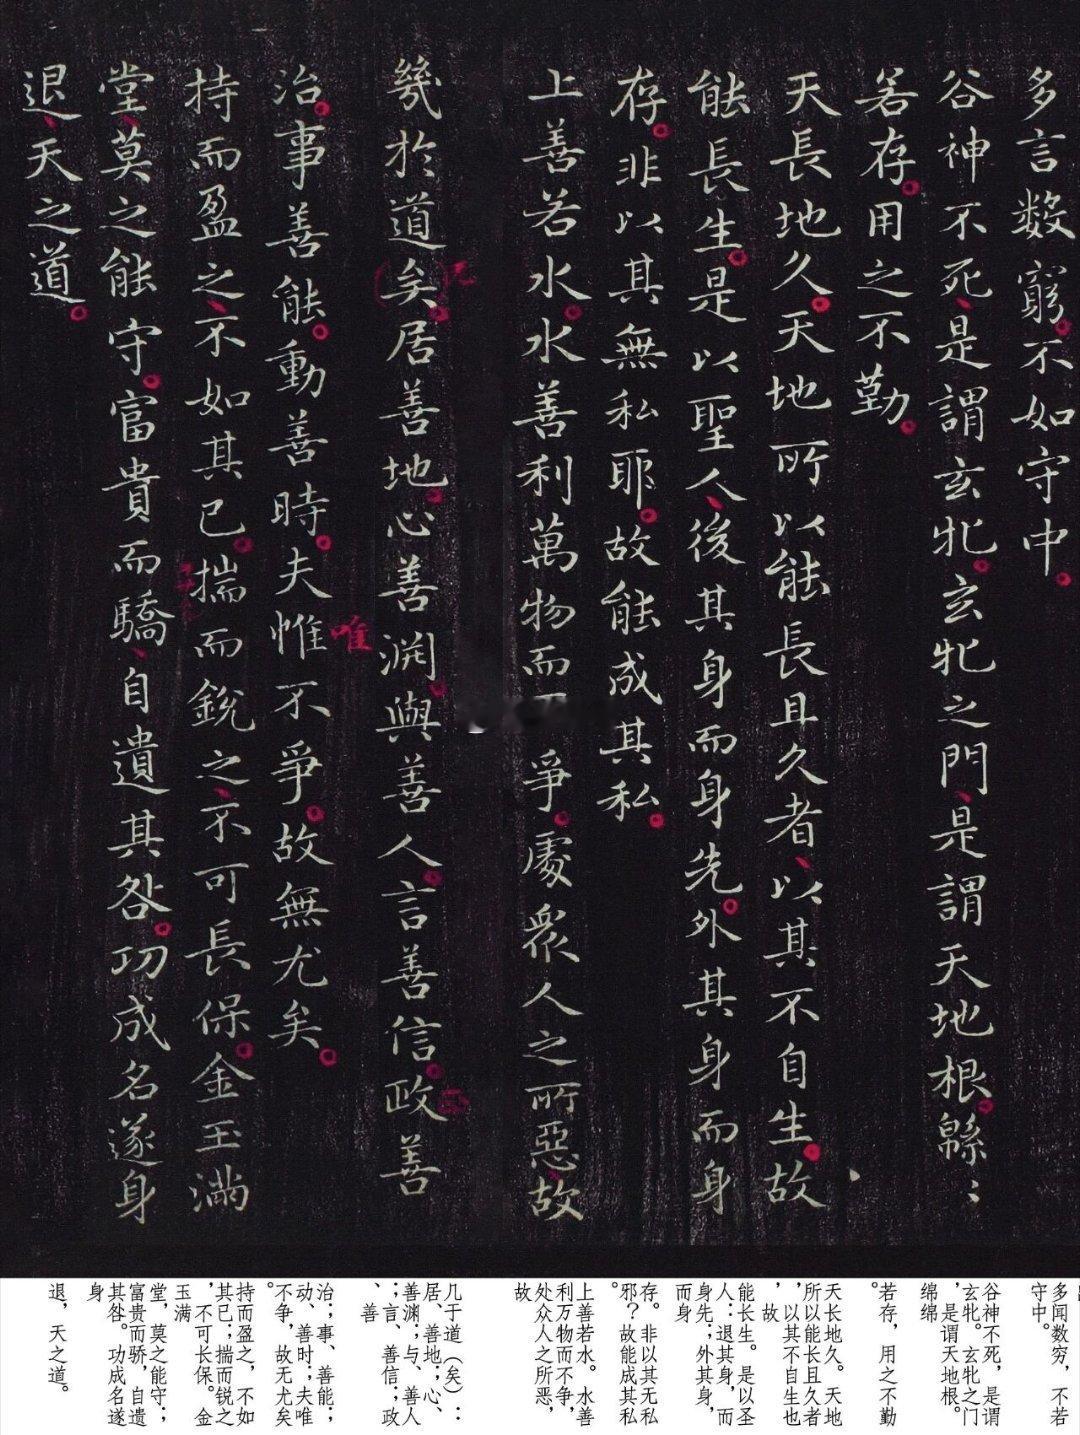 多言數窮不如守中
谷神不死是謂玄牝玄牝之門是謂天地根緜〻
若存用之不勤
天長地久天地所以能長且久者以其不自生故
能長生是以聖人後其身而身先外其身而身
存非以其無私耶故能成其私
上善若水水善利萬物而不爭處衆人之所惡故
幾於道矣居善地心善渊與善人言善信政善
治事善能動善時夫惟不爭故無尤矣
唯
持而盈之不如其已揣而銳之不可長保金玉滿
堂莫之能守富貴而驕自遺其咎功成名遂身
退天之道
多闻数穷，不若
守中。
谷神不死，是谓
玄牝。玄牝之门
，是谓天地根。
绵绵
若存，用之不勤
。
天长地久。天地
所以能长且久者
，以其不自生也
，故
能长生。是以圣
人：退其身，而
身先；外其身，
而身
存。非以其无私
邪？故能成其私
上善若水。水善
利万物而不争，
处众人之所恶，
故
几于道（矣）：
居、善地；心、
善渊；与、善人
；言、善信；政
、善
治；事、善能；
动、善时；夫唯
不争，故无尤矣
。
持而盈之，不如
其已；揣而锐之
，不可长保。金
玉满
堂，莫之能守；
富贵而骄，自遗
其咎。功成名遂
身
退，天之道。